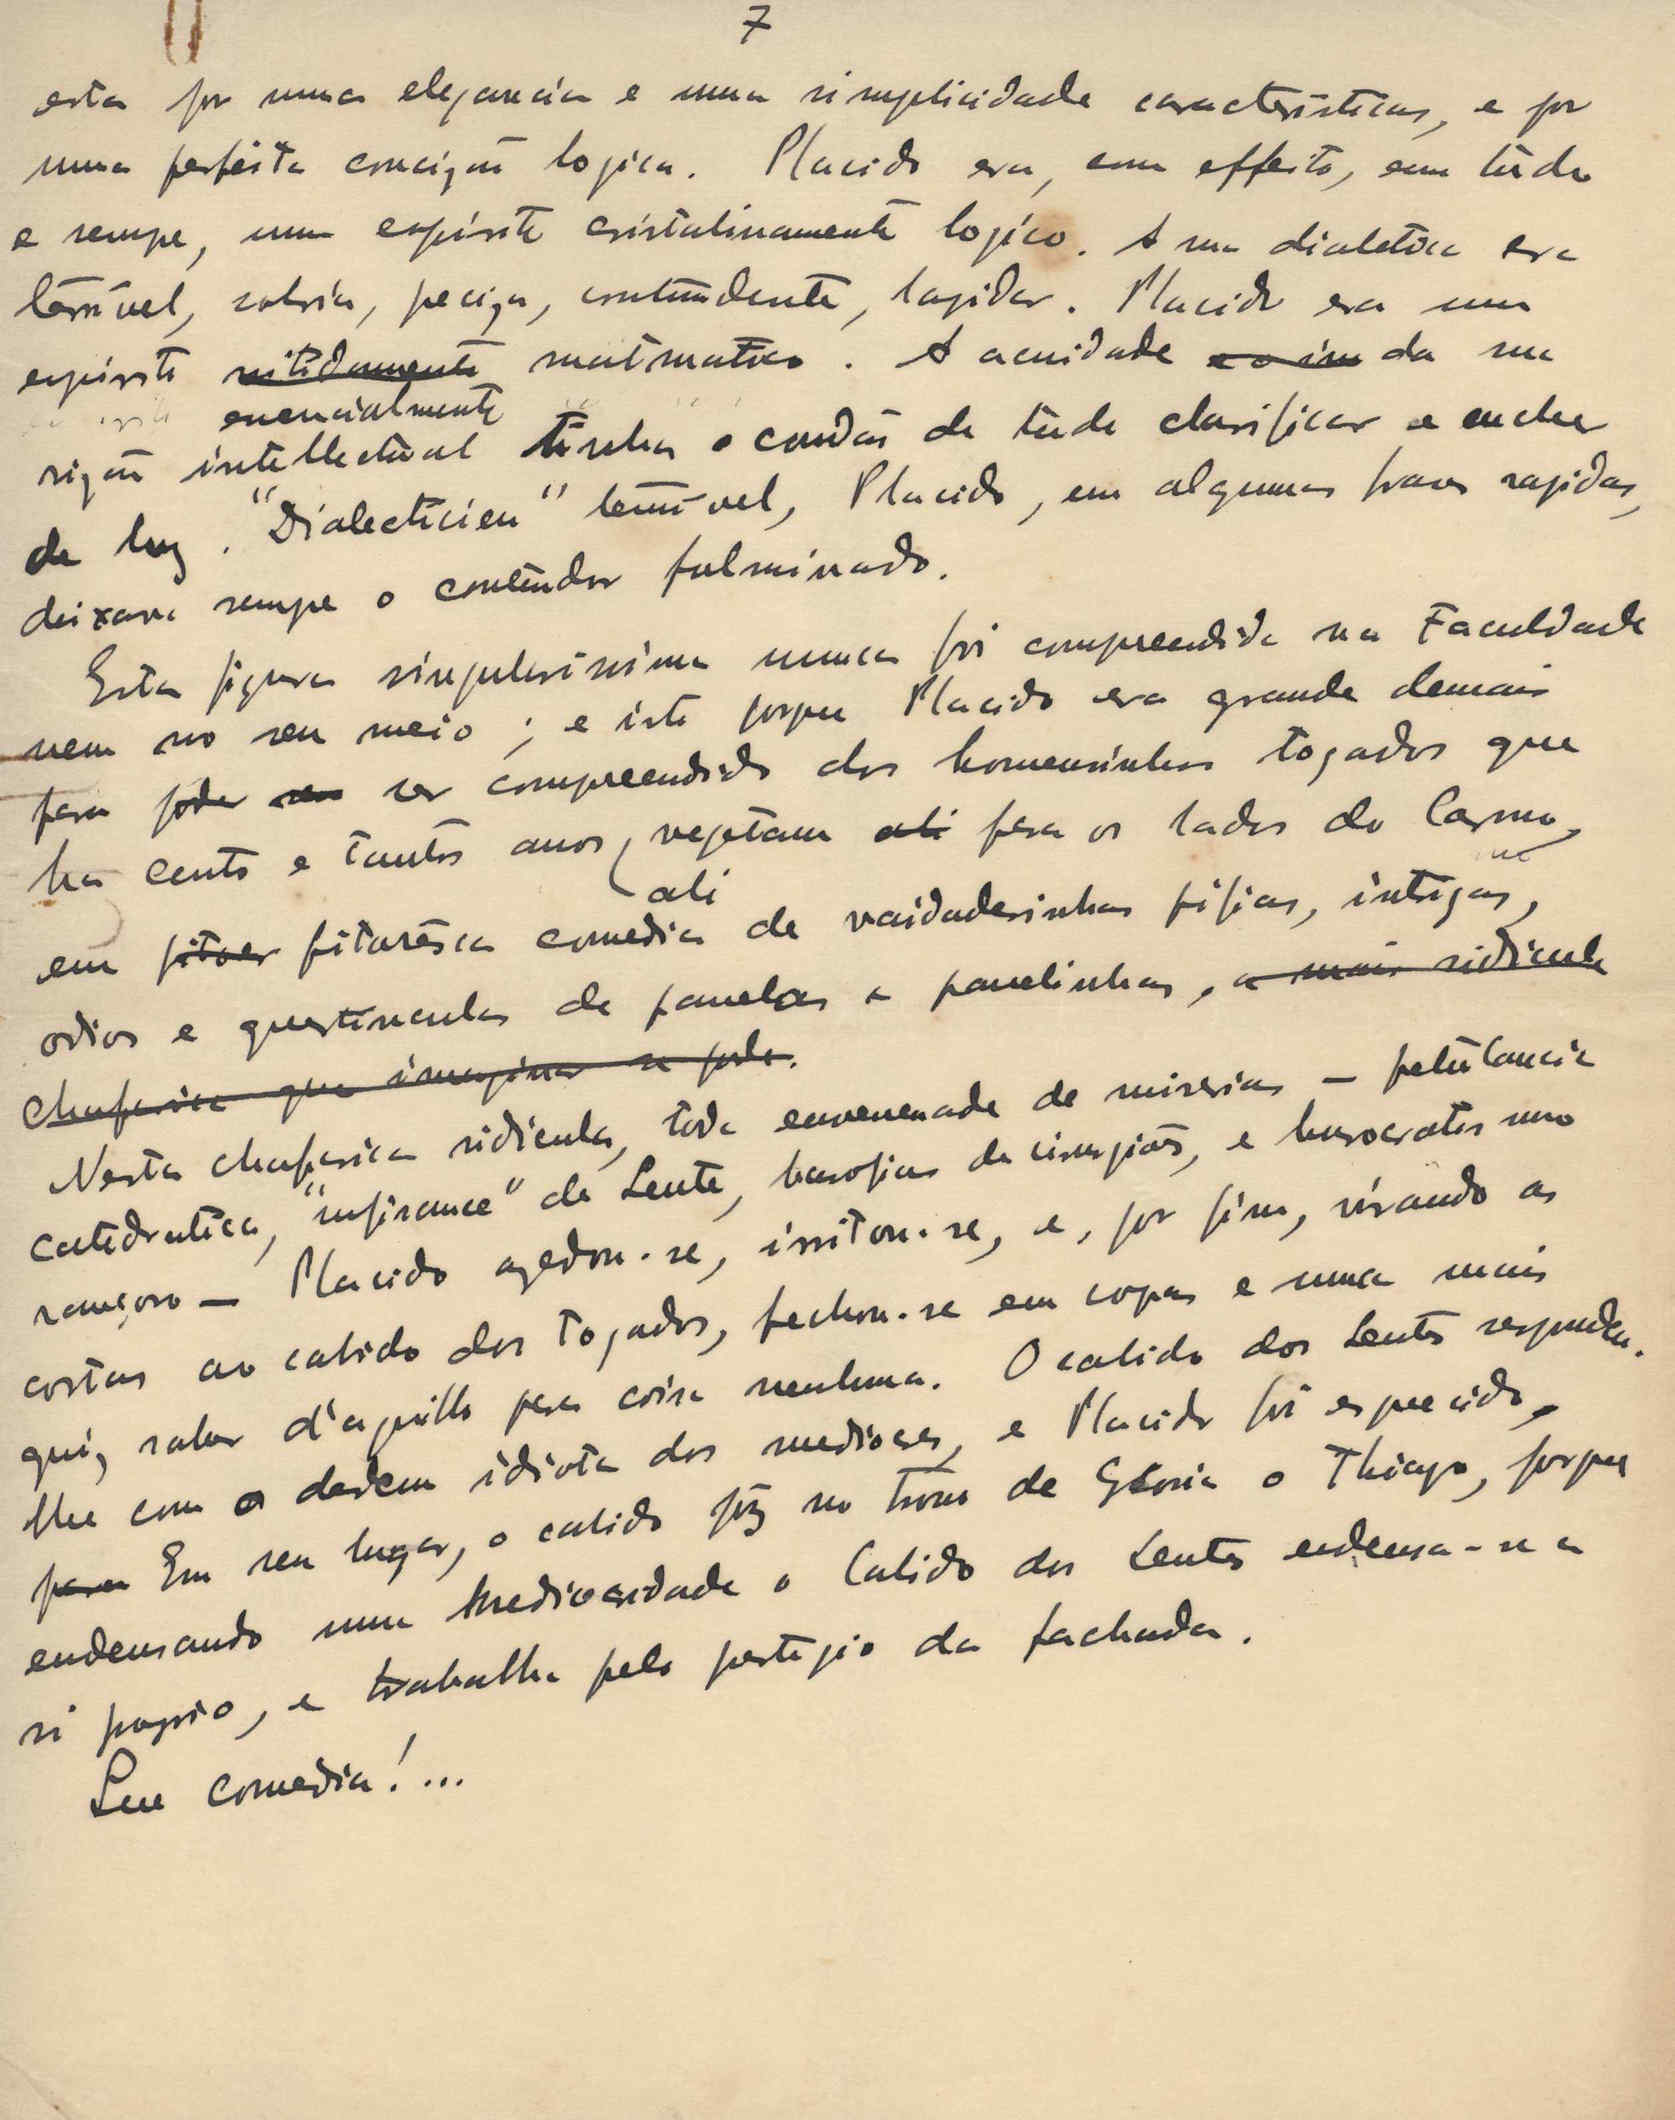 7
esta por uma elegancia e uma simplicidade caracteristicas, e por
uma perfeita concizão logica. Placido era, com effeito, em tudo
e sempre, um espirito cristalinamente logico. A sua dialetica era
terrivel, sobria, preciza, contundente, lapidar. Placido era um
espirito nitidamente matematico. A acuidade da sua
essencialmente
vizão intellectual tinha o condão de tudo clarificar e encher
de luz. "Dialecticien" temivel, Placido, em algumas frases rapidas,
deixava sempre o contendor fulminado.
Esta figura singularissima nunca foi compreendida na Faculdade
nem no seu meio; e isto porque Placido era grande demais
para poder ser compreendido dos homensinhos togados que
ha cento e tantos anos, vegetam ali para os lados do Carmo,
ali
em pitoresca comedia de vaidadesinhas pifias, intrigas,
odios e questiunculas de panelas e panelinhas, a mais ridicula
chafarica que imaginar se pode.
Nesta chafarica ridicula, toda envenenada de miserias — petulancia
catedratica, "suffisance" de Lente, basofias de cirurgiões, e burocratismo
rançoso — Placido azedou-se, irritou-se, e, por fim, virando as
costas ao cabido dos Togados, fechou-se em copas e nunca mais
quiz saber d'aquillo para coisa nenhuma. O cabido dos Lentes respondeu-
lhe com o desdem idiota dos mediocres, e Placido foi esquecido,
para Em seu lugar, o cabido pôz no trono de Gloria o Thiago, porque
endeusando uma Mediocridade o Cabido dos Lentes endeusa-se a
si proprio, e trabalha pelo prestigio da fachada.
Sua comedia!...